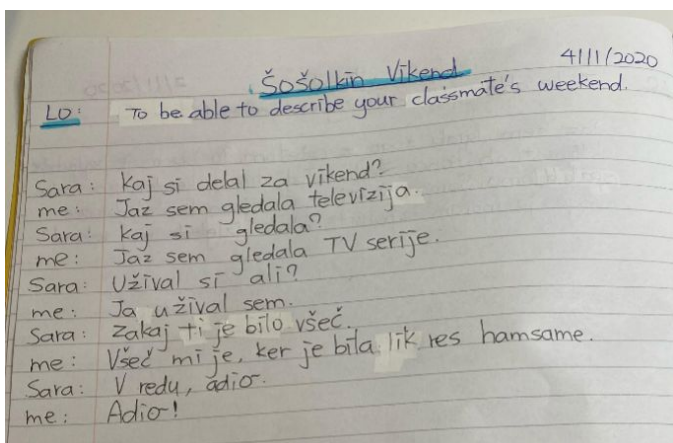 Šošolkin Vikend 4/11/2020
LO: To be able to describe your classmate's weekend.
Sara: Kaj si delal za vikend?
me: Jaz sem gledala televizija.
Sara: Kaj si gledala?
me: Jaz sem gledala TV serije.
Sara: Užival si ali?
me: Ja užival sem.
Sara: Zakaj ti je bilo všeč.
me: Všeč mi je, ker je bila lik res hamsame.
Sara: V redu, adio.
me: Adio!